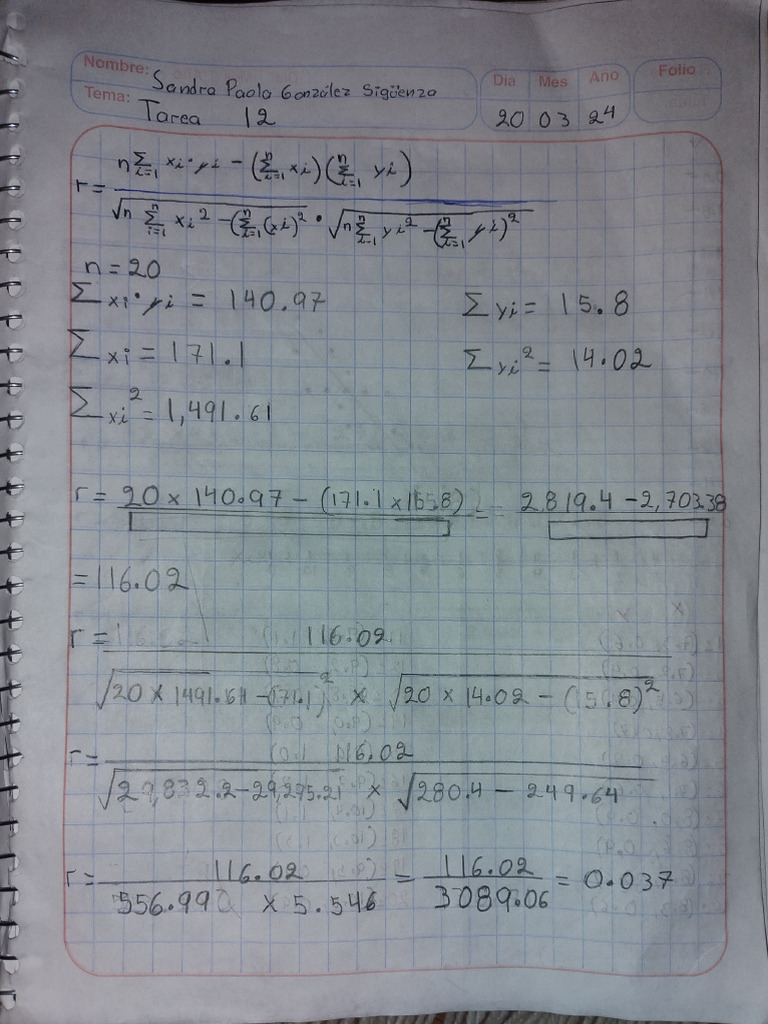 Nombre: Sandra Paola González Sigüenza
Día Mes Año Folio
Tema: Tarea 12
20 03 24
r = n∑ᵢ₌₁ xi·yi − (∑ⁿᵢ₌₁ xi)(∑ⁿᵢ₌₁ yi)
√n ∑ⁿᵢ₌₁ xi² − (∑ⁿᵢ₌₁(xi)² · √n∑ⁿᵢ₌₁ yi² − (∑ⁿᵢ₌₁ yi)²
n = 20
∑xi·yi = 140.97 ∑yi = 15.8
∑xi = 171.1 ∑yi² = 14.02
∑xi² = 1,491.61
r = 20 × 140.97 − (171.1 × 15.8) = 2819.4 − 2,703.38
= 116.02
r = 116.02
√20 × 1491.61 − (171.1)² × √20 × 14.02 − (15.8)²
r = 116.02
√29,832.2 − 29,275.21 × √280.4 − 249.64
r = 116.02 = 116.02 = 0.037
556.990 × 5.546 3089.06